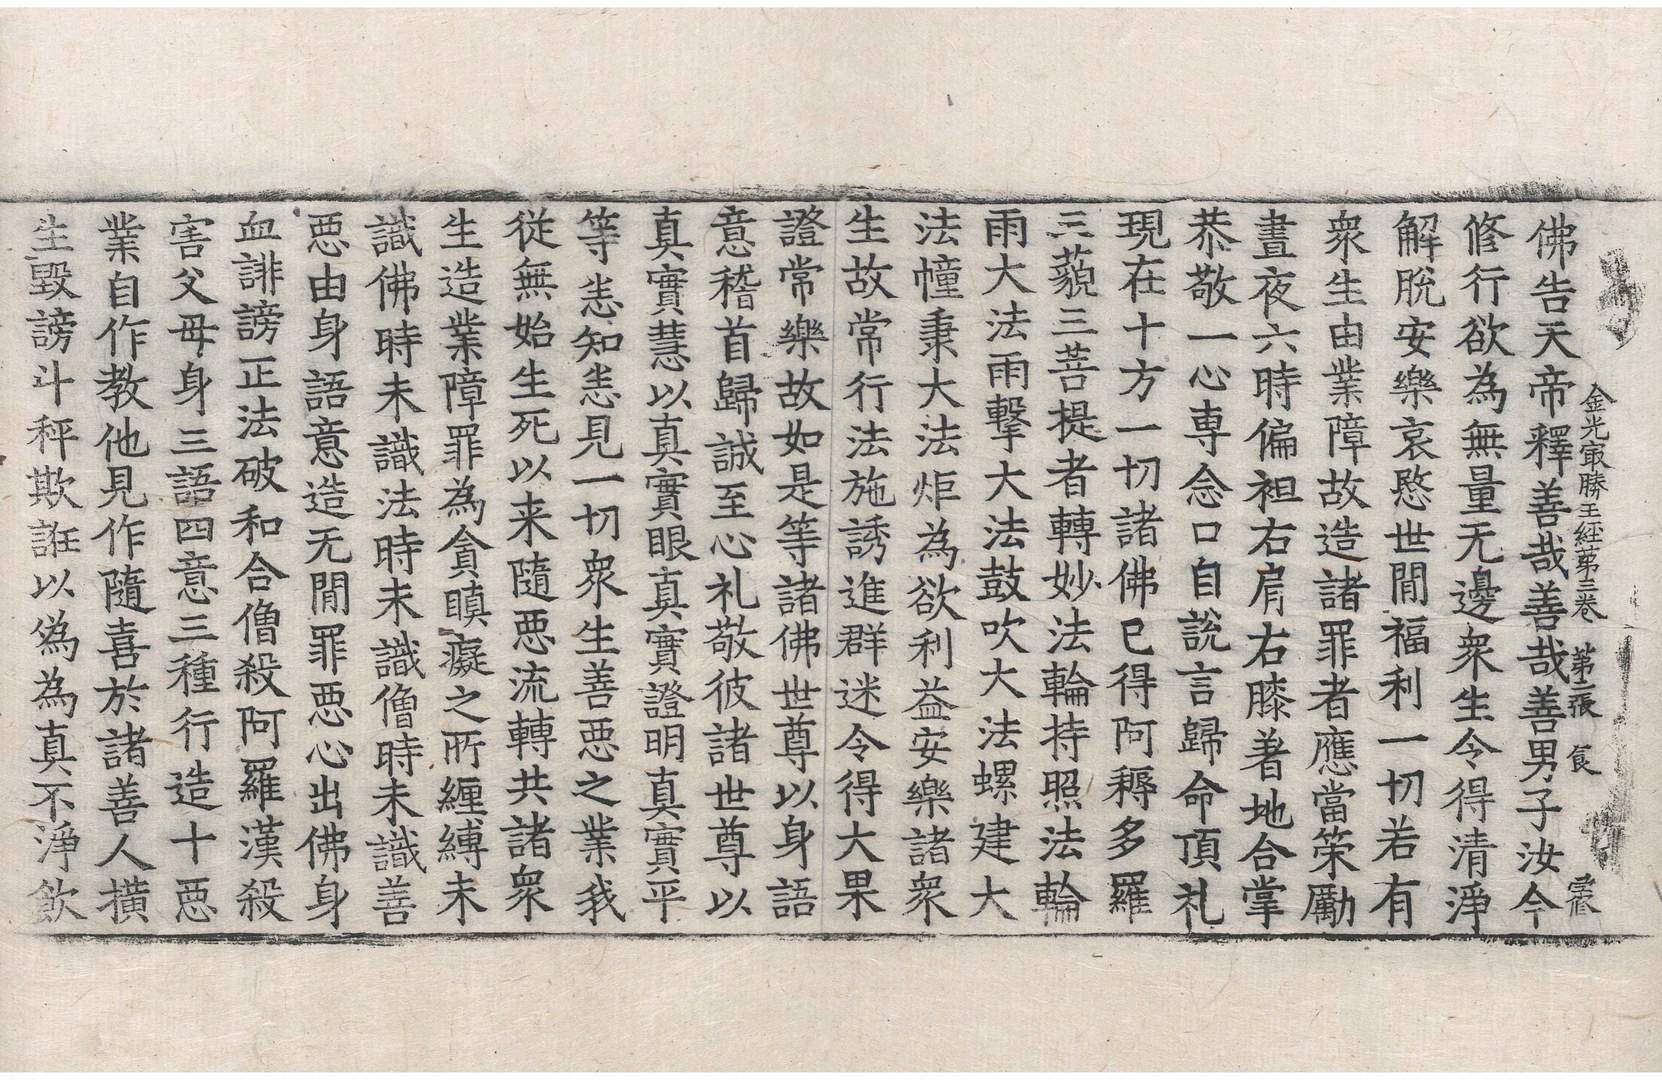 金光㝡勝王經第三卷　第二張　食
佛告天帝釋善哉善哉善男子汝今
修行欲為無量无邊衆生令得清淨
解脫安樂哀愍世間福利一切若有
衆生由業障故造諸罪者應當策勵
晝夜六時偏袒右肩右膝著地合掌
恭敬一心專念口自說言歸命頂礼
現在十方一切諸佛已得阿耨多羅
三藐三菩提者轉妙法輪持照法輪
雨大法雨擊大法鼓吹大法螺建大
法幢秉大法炬為欲利益安樂諸衆
生故常行法施誘進群迷令得大果
證常樂故如是等諸佛世尊以身語
意稽首歸誠至心礼敬彼諸世尊以
真實慧以真實眼真實證明真實平
等悉知悉見一切衆生善惡之業我
從無始生死以来隨惡流轉共諸衆
生造業障罪為貪瞋癡之所纏縛未
識佛時未識法時未識僧時未識善
惡由身語意造无間罪惡心出佛身
血誹謗正法破和合僧殺阿羅漢殺
害父母身三語四意三種行造十惡
業自作教他見作隨喜於諸善人橫
生毀謗斗秤欺誑以偽為真不淨飲